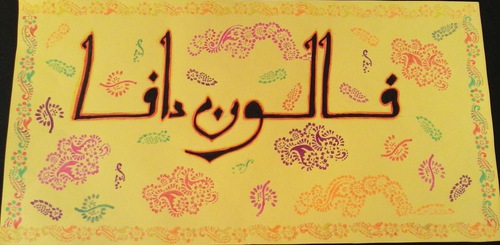 فالون دافا